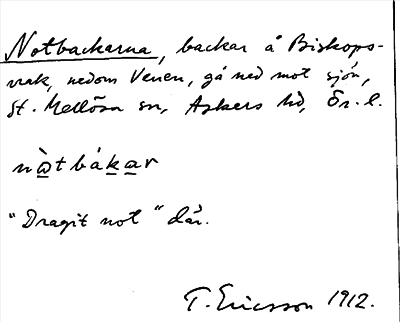 Notbackarna, backar å Biskops-
vrak, nedom Venen, gå ned mot sjön,
St. Mellösa sn, Askers hd, Ör. l.
nὰtbákar
"Dragit not" där.
T. Ericsson 1912.